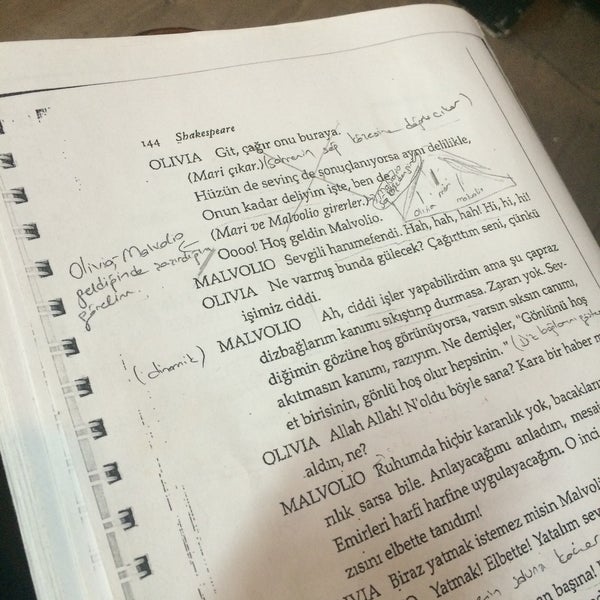 144 Shakespeare
OLIVIA Git, çağır onu buraya.
(Mari çıkar.) (sahnenin sağ köşesine doğru çıkar)
Hüzün de sevinç de sonuçlanıyorsa aynı delilikle,
Onun kadar deliyim işte, ben de.
(Mari ve Malvolio girerler.)
Oooo! Hoş geldin Malvolio.
Olivia-Malvolio
geldiğinde
görelim.
MALVOLIO Sevgili hanımefendi. Hah, hah, hah! Hi, hi, hi!
OLIVIA Ne varmış bunda gülecek? Çağırttım seni, çünkü
işimiz ciddi.
(dinamik) MALVOLIO Ah, ciddi işler yapabilirdim ama şu çapraz
dizbağların kanımı sıkıştırıp durmasa. Zararı yok. Sev-
diğimin gözüne hoş görünüyorsa, varsın sıksın canımı,
akıtmasın kanımı, razıyım. Ne demişler, "Gönlünü hoş
et birisinin, gönlü hoş olur hepsinin.
OLIVIA Allah Allah! N'oldu böyle sana? Kara bir haber m
aldın, ne?
MALVOLIO Ruhumda hiçbir karanlık yok, bacakları
rılık sarsa bile. Anlayacağımı anladım, mesa
Emirleri harfi harfine uygulayacağım. O inci
zısını elbette tanıdım!
VIA Biraz yatmak istemez misin Malvoli
O, Yatmak! Elbette! Yatalım sev
an başına!